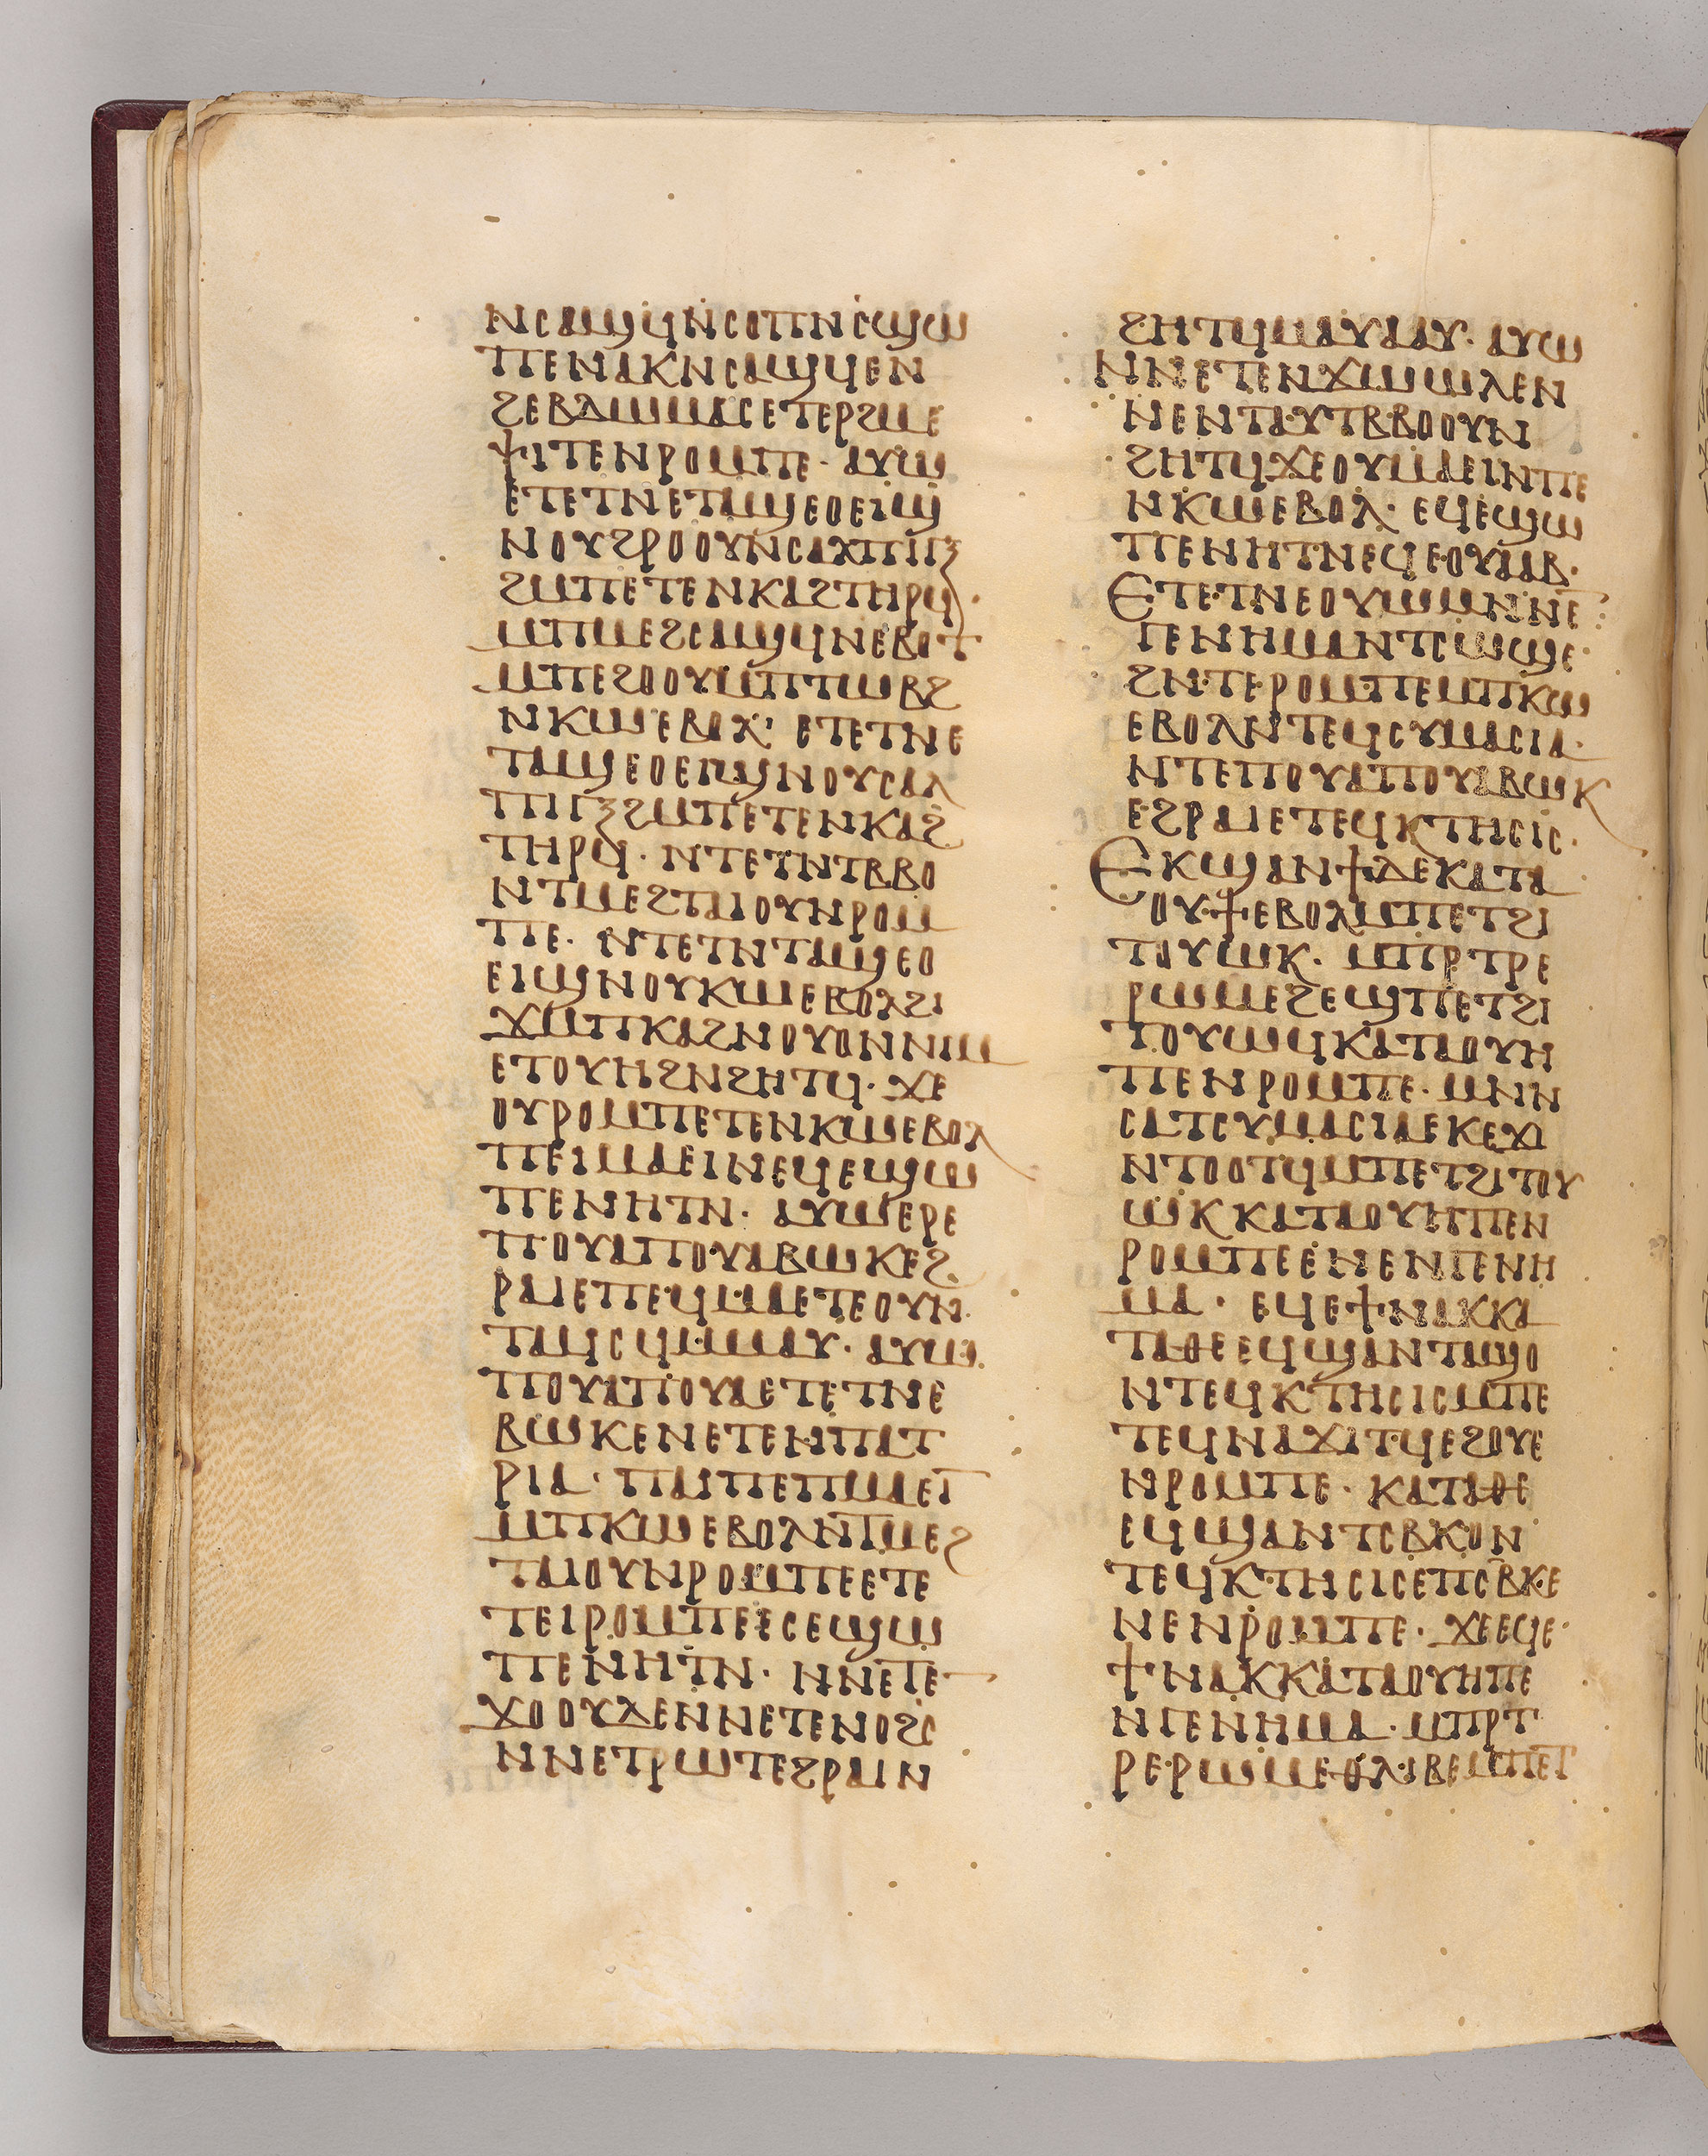 ⲛⲥⲁϣϥⲛⲥⲟⲡⲛⲥϣⲱ
ⲡⲉⲛⲁⲕⲛⲥⲁϣϥⲉⲛ
ϩⲉⲃⲇⲱⲙⲁⲥⲉⲧⲉⲣϩⲙⲉ
ⲯⲓⲧⲉⲛⲣⲟⲙⲡⲉ· ⲁⲩⲱ
ⲉⲧⲉⲧⲛⲉⲧⲁϣⲉⲟⲉⲓϣ
ⲛⲟⲩϩⲣⲟⲟⲩⲛⲥⲁⲗⲡⲓⲅⲝ
ϩⲙⲡⲉⲧⲉⲛⲕⲁϩⲧⲏⲣϥ·
ⲙⲡⲙⲉϩⲥⲁϣϥⲛⲉⲃⲟⲧ
ⲙⲡⲉϩⲟⲟⲩⲙⲡⲧⲱⲃϩ
ⲛⲕⲱⲉⲃⲟⲗ· ⲉⲧⲉⲧⲛⲉ
ⲧⲁϣⲉⲟⲉⲓϣⲛⲟⲩⲥⲁⲗ
ⲡⲓⲅⲝϩⲙⲡⲉⲧⲉⲛⲕⲁϩ
ⲧⲏⲣϥ· ⲛⲧⲉⲧⲛⲧⲃⲃⲟ
ⲛⲧⲙⲉϩⲧⲁⲓⲟⲩⲛⲣⲟⲙ
ⲡⲉ· ⲛⲧⲉⲧⲛⲧⲁϣⲉⲟ
ⲉⲓϣⲛⲟⲩⲕⲱⲉⲃⲟⲗϩⲓ
ϫⲙⲡⲕⲁϩⲛⲟⲩⲟⲛⲛⲓⲙ
ⲉⲧⲟⲩⲏϩⲛϩⲏⲧϥ· ϫⲉ
ⲟⲩⲣⲟⲙⲡⲉⲧⲉⲛⲕⲱⲉⲃⲟⲗ
ⲡⲉⲓⲙⲁⲉⲓⲛⲉϥⲉϣⲱ
ⲡⲉⲛⲏⲧⲛ· ⲁⲩⲱⲉⲣⲉ
ⲡⲟⲩⲁⲡⲟⲩⲁⲃⲱⲕⲉϩ
ⲣⲁⲓⲉⲡⲉϥⲙⲁⲉⲧⲉⲟⲩⲛ
ⲧⲁϥⲥϥⲙⲙⲁⲩ· ⲁⲩⲱ
ⲡⲟⲩⲁⲡⲟⲩⲁⲉⲧⲉⲧⲛⲉ
ⲃⲱⲕⲉⲛⲉⲧⲉⲛⲡⲁⲧ
ⲣⲓⲁ· ⲡⲁⲓⲡⲉⲡⲙⲁⲉⲓ
ⲙⲡⲕⲱⲉⲃⲟⲗⲛⲧⲙⲉϩ
ⲧⲁⲓⲟⲩⲛⲣⲟⲙⲡⲉⲉⲧⲉ
ⲧⲉⲓⲣⲟⲙⲡⲉⲉⲥⲉϣⲱ
ⲡⲉⲛⲏⲧⲛ· ⲛⲛⲉⲧⲉ
ϫⲟⲟⲩⲇⲉⲛⲛⲉⲧⲉⲛⲟϩⲥ
ⲛⲛⲉⲧⲣⲱⲧⲉϩⲣⲁⲓⲛ
ϩⲏⲧϥⲙⲁⲩⲁⲁⲩ· ⲁⲩⲱ
ⲛⲛⲉⲧⲉⲛϫⲱⲱⲗⲉⲛ
ⲛⲉⲛⲧⲁⲩⲧⲃⲃⲟⲟⲩⲛ
ϩⲏⲧϥϫⲉⲟⲩⲙⲁⲉⲓⲛⲡⲉ
ⲛⲕⲱⲉⲃⲟⲗ· ⲉϥⲉϣⲱ
ⲡⲉⲛⲏⲧⲛⲉϥⲉⲟⲩⲁⲁⲃ·
ⲉⲧⲉⲧⲛⲉⲟⲩⲱⲙⲛⲛⲉ
ⲅⲉⲛⲏⲙⲁⲛⲧⲥⲱϣⲉ·
ϩⲛⲧⲉⲣⲟⲙⲡⲉⲙⲡⲕⲱ
ⲉⲃⲟⲗⲛⲧⲉϥⲥⲩⲙⲁⲥⲓⲁ·
ⲛⲧⲉⲡⲟⲩⲁⲡⲟⲩⲁⲃⲱⲕ
ⲉϩⲣⲁⲓⲉⲧⲉϥⲕⲧⲏⲥⲓⲥ·
ⲉⲕϣⲁⲛϯⲇⲉⲕⲁⲧⲁ
ⲟⲩϯⲉⲃⲟⲗⲙⲡⲉⲧϩⲓ
ⲧⲟⲩⲱⲕ· ⲙⲡⲣⲧⲣⲉ
ⲣⲱⲙⲉϩⲉϣⲡⲉⲧϩⲓ
ⲧⲟⲩⲱϥⲕⲁⲧⲁⲟⲩⲏ
ⲡⲉⲛⲣⲟⲙⲡⲉ· ⲙⲛⲛ
ⲥⲁⲧⲥⲩⲙⲁⲥⲓⲁⲉⲕⲉϫⲓ
ⲛⲧⲟⲟⲧϥⲙⲡⲉⲧϩⲓⲧⲟⲩ
ⲱⲕⲕⲁⲧⲁⲟⲩⲏⲡⲉⲛ
ⲣⲟⲙⲡⲉⲉⲛⲉⲛⲅⲉⲛⲏ
ⲙⲁ· ⲉϥⲉϯⲛⲁⲕⲕⲁ
ⲧⲁⲑⲉⲉϥϣⲁⲛⲧⲁϣⲟ
ⲛⲧⲉϥⲕⲧⲏⲥⲓⲥⲙⲡⲉ
ⲧⲉϥⲛⲁϫⲓⲧϥⲉϩⲟⲩⲉ
ⲛⲣⲟⲙⲡⲉ· ⲕⲁⲧⲁⲑⲉ
ⲉϥϣⲁⲛⲧⲥⲃⲕⲟⲛ
ⲧⲉϥⲕⲧⲏⲥⲓⲥⲉⲡⲥⲃⲕⲉ
ⲛⲉⲛⲣⲟⲙⲡⲉ· ϫⲉⲉϥⲉ
ϯⲛⲁⲕⲕⲁⲧⲁⲟⲩⲏⲡⲉ
ⲛⲅⲉⲛⲏⲙⲁ· ⲙⲡⲣⲧ
ⲣⲉⲣⲱⲙⲉⲑⲗⲓⲃⲉⲙⲡⲉⲧ